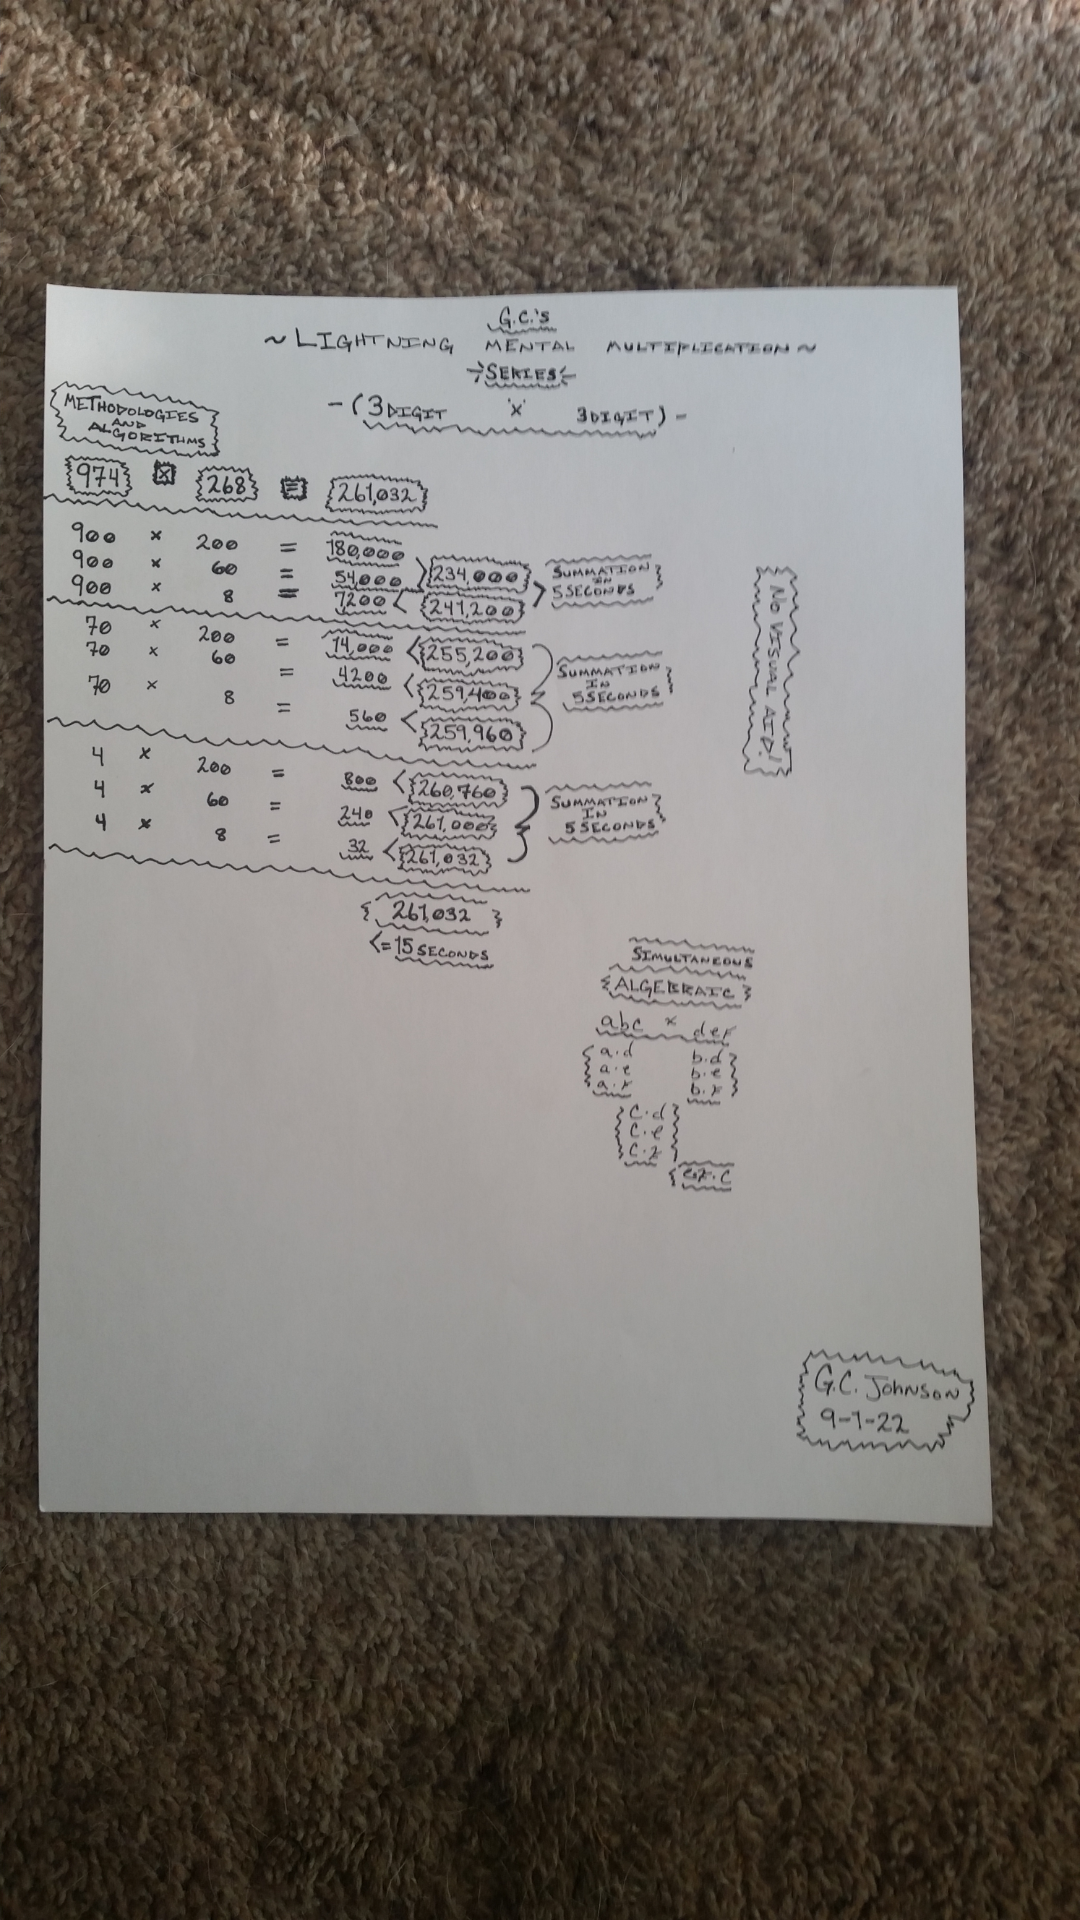 G.C.'s
~ LIGHTNING MENTAL MULTIPLICATION ~
SERIES
- (3DIGIT "x" 3DIGIT) -
METHODOLOGIES
AND
ALGORITHMS
974 x 268 = 261,032
900 x 200 = 180,000
900 x 60 = 54,000 234,000
900 x 8 = 7200 < 241,200
SUMMATION
IN
5 SECONDS
70 x 200 = 14,000 < 255,200
70 x 60 = 4200 < 259,400
70 x 8 = 560 < 259,960
SUMMATION
IN
5 SECONDS
4 x 200 = 800 < 260,760
4 x 60 = 240 < 261,000
4 x 8 = 32 < 261,032
SUMMATION
IN
5 SECONDS
261,032
<= 15 SECONDS
NO VISUAL AID!
SIMULTANEOUS
ALGEBRAIC
abc x def
a.d b.d
a.e b.e
a.f b.f
c.d
c.e
c.f
G.C. JOHNSON
9-1-22